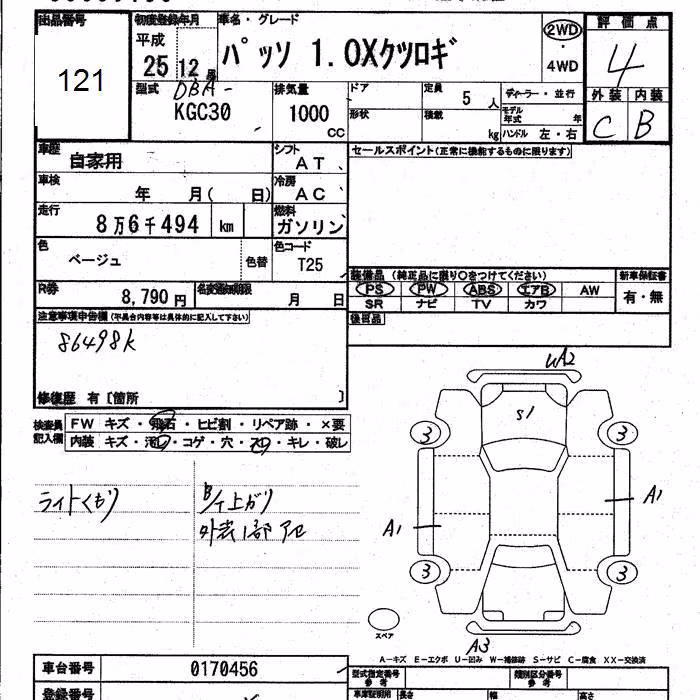 出品番号 初度登録年月 車名・グレード 評価点
121 平成 25 12 月 パッソ 1.0Xクツロギ 2WD ・ 4WD 4
型式 DBA- KGC30 排気量 1000 cc ドア 定員 5 人 ディーラー・並行 外装 内装
形状 積載 kg モデル年式 年 ハンドル 左・右 C B
車歴 自家用 シフト AT セールスポイント(正常に機能するものに限ります)
車検 年 月( 日) 冷房 AC
走行 8万6千494 km 燃料 ガソリン
色 ベージュ 色替 色コード T25
装備品 (純正品に限り○をつけてください) 新車保証書
PS PW ABS エアB AW 有・無
SR ナビ TV カワ
R券 8,790円 名変通知期限 月 日
後日品
注意事項申告欄(不具合内容等は具体的に記入して下さい)
86498k
修復歴 有〔箇所 〕
検査員記入欄 FW キズ・飛石・ヒビ割・リペア跡・×要
内装 キズ・汚レ・コゲ・穴・スレ・キレ・破レ
ライトくもり
B/イ上がり
外装1部アセ
WA2
S1
3 3
A1 A1
3 3
スペア
A3
A-キズ E-エクボ U-凹み W-補修跡 S-サビ C-腐食 XX-交換済
車台番号 0170456
型式指定番号 参考 類別区分番号 参考
登録番号 車庫証明用 長さ 幅 高さ